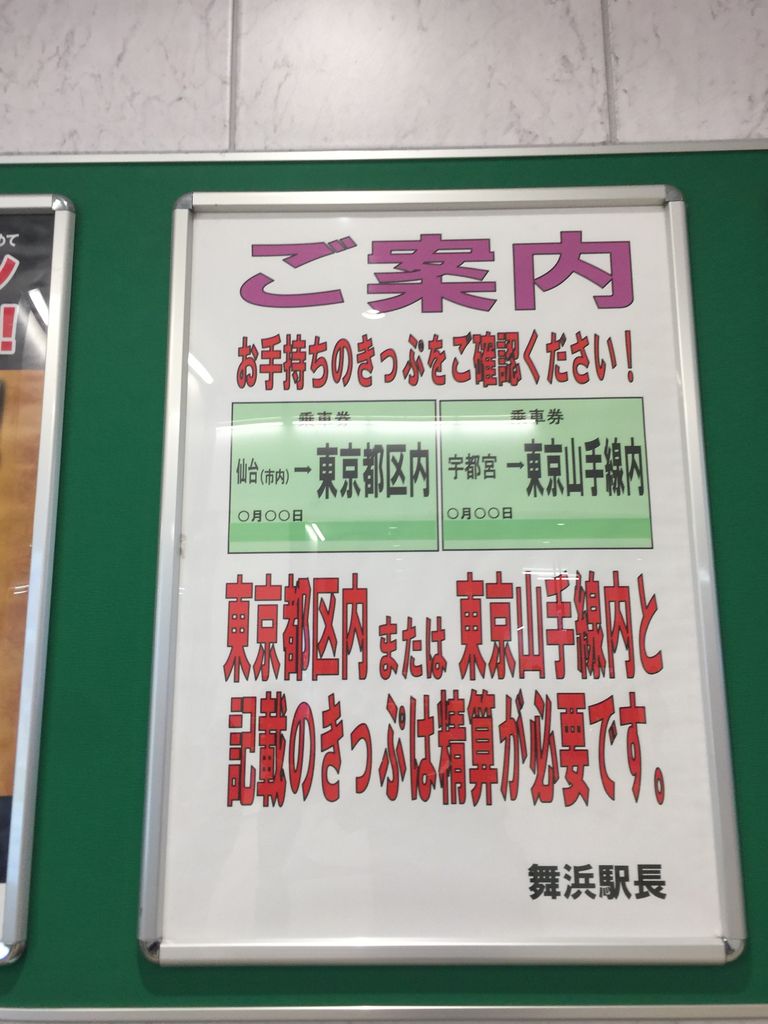 めて
!
ご案内
お手持ちのきっぷをご確認ください！
乗車券
仙台(市内)→東京都区内
○月○○日
乗車券
宇都宮→東京山手線内
○月○○日
東京都区内 または 東京山手線内と
記載のきっぷは精算が必要です。
舞浜駅長